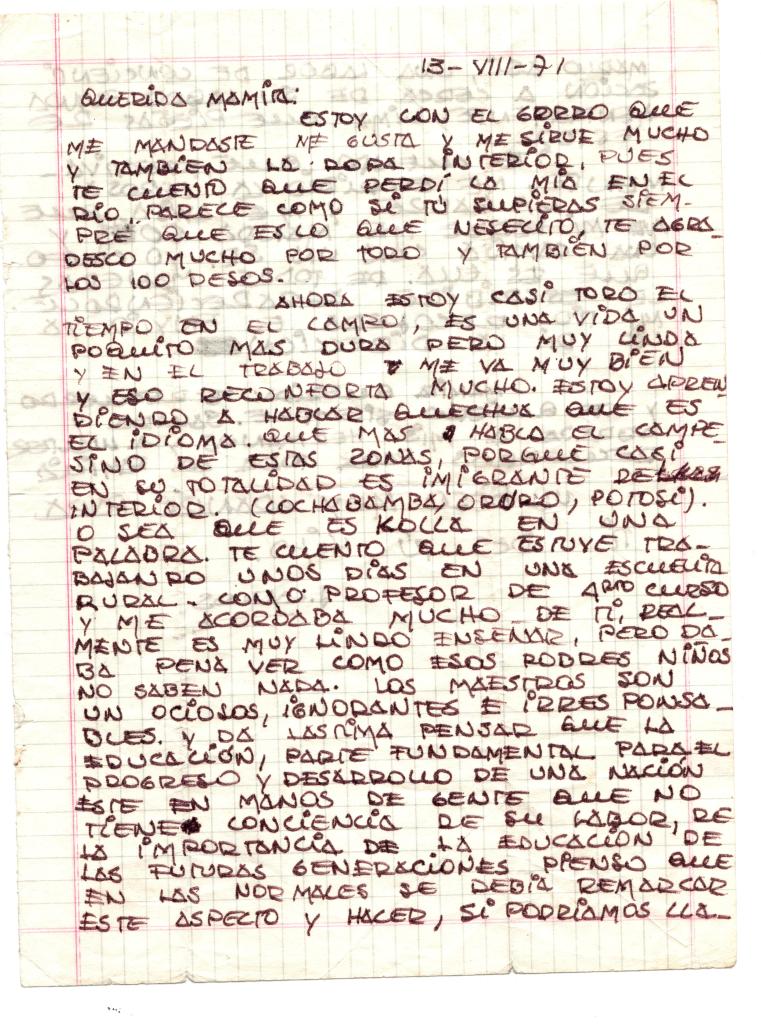 13-VIII-71
QUERIDA MAMITA:
ESTOY CON EL GORRO QUE
ME MANDASTE ME GUSTA Y ME SIRVE MUCHO
Y TAMBIÉN LA ROPA INTERIOR, PUES
TE CUENTO QUE PERDÍ LA MIA EN EL
RÍO. PARECE COMO SI TÚ SUPIERAS SIEM-
PRE QUE ES LO QUE NESECITO, TE AGRA-
DESCO MUCHO POR TODO Y TAMBIÉN POR
LOS 100 PESOS.
AHORA ESTOY CASI TODO EL
TIEMPO EN EL CAMPO, ES UNA VIDA UN
POQUITO MAS DURA PERO MUY LINDA
Y EN EL TRABAJO ME VA MUY BIEN
Y ESO RECONFORTA MUCHO. ESTOY APREN
DIENDO A HABLAR QUECHUA QUE ES
EL IDIOMA QUE MAS HABLA EL CAMPE-
SINO DE ESTAS ZONAS, PORQUE CASI
EN SU TOTALIDAD ES IMIGRANTE DEL
INTERIOR. (COCHABAMBA, ORURO, POTOSÍ).
O SEA QUE ES KOLLA EN UNA
PALABRA. TE CUENTO QUE ESTUVE TRA-
BAJANDO UNOS DÍAS EN UNA ESCUELA
RURAL. COMO PROFESOR DE 4RTO CURSO
Y ME ACORDABA MUCHO DE TI, REAL-
MENTE ES MUY LINDO ENSEÑAR, PERO DA-
BA PENA VER COMO ESOS POBRES NIÑOS
NO SABEN NADA. LOS MAESTROS SON
UN OCIOSOS, IGNORANTES E IRRESPONSA-
BLES. Y DA LASTIMA PENSAR QUE LA
EDUCACIÓN, PARTE FUNDAMENTAL PARA EL
PROGRESO Y DESARROLLO DE UNA NACIÓN
ESTE EN MANOS DE GENTE QUE NO
TIENE CONCIENCIA DE SU LABOR, DE
LA IMPORTANCIA DE LA EDUCACIÓN DE
LAS FUTURAS GENERACIONES PIENSO QUE
EN LAS NORMALES SE DEBIA REMARCAR
ESTE ASPECTO Y HACER, SI PODRÍAMOS LLA-